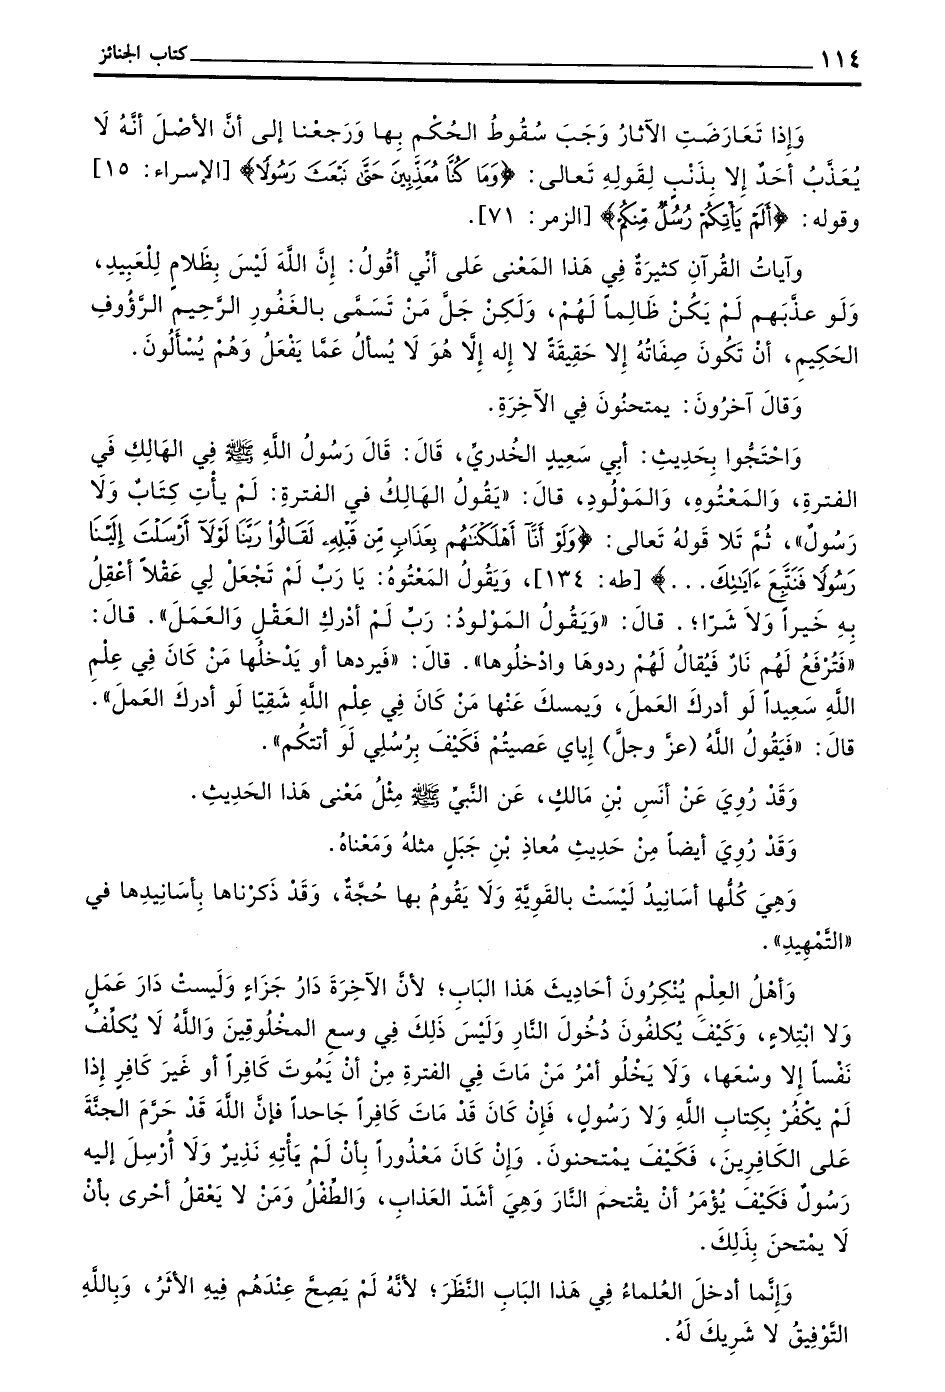 ١١٤ كتاب الجنائز
وَإذا تَعَارَضَتِ الآثارُ وَجَبَ سُقُوطُ الحُكْمِ بِها وَرَجعْنا إلى أنَّ الأصْلَ أنَّهُ لَا
يُعَذَّبُ أحَدٌ إلا بِذَنْبٍ لِقَولِهِ تَعالى: ﴿وَمَا كُنَّا مُعَذِّبِينَ حَتَّى نَبْعَثَ رَسُولًا﴾ [الإسراء: ١٥]
وقوله: ﴿أَلَمْ يَأْتِكُمْ رُسُلٌ مِّنكُمْ﴾ [الزمر: ٧١].
وآياتُ القُرآنِ كثيرَةٌ فِي هَذا المَعْنى عَلى أنِّي أقُولُ: إنَّ اللَّهَ لَيْسَ بِظَلامٍ لِلْعَبِيدِ،
وَلَو عذَّبَهم لَمْ يَكُنْ ظَالِماً لَهُمْ، وَلَكِنْ جَلَّ مَنْ تَسَمَّى بالغَفُورِ الرَّحِيمِ الرَّؤُوفِ
الحَكِيمِ، أنْ تَكُونَ صِفَاتُهُ إلا حَقِيقَةً لا إله إلَّا هُوَ لَا يُسألُ عَمَّا يَفْعَلُ وَهُمْ يُسْألُونَ.
وَقالَ آخرُونَ: يمتحنُونَ فِي الآخِرَةِ.
وَاحْتَجُّوا بِحَدِيثِ: أبي سَعِيدٍ الخُدريِّ، قَالَ: قَالَ رَسُولُ اللَّهِ ﷺ فِي الهَالِكِ فَي
الفترةِ، وَالمَعْتُوهِ، وَالمَوْلُودِ، قالَ: «يَقُولُ الهَالِكُ في الفترةِ: لَمْ يأتِ كِتَابٌ وَلَا
رَسُولٌ»، ثُمَّ تَلا قَولهُ تَعالى: ﴿وَلَوْ أَنَّآ أَهْلَكْنَٰهُم بِعَذَابٍ مِّن قَبْلِهِۦ لَقَالُوا۟ رَبَّنَا لَوْلَآ أَرْسَلْتَ إِلَيْنَا
رَسُولًا فَنَتَّبِعَ ءَايَٰتِكَ...﴾ [طه: ١٣٤]، وَيَقُولُ المَعْتُوهُ: يَا رَبِّ لَمْ تَجْعَلْ لِي عَقْلاً أعْقِلُ
بِهِ خَيراً وَلاَ شَرًا؛. قالَ: «وَيَقُولُ المَوْلودُ: رَبِّ لَمْ أدْركِ العَقْلِ وَالعَمَلَ». قالَ:
«فَتُرْفَعُ لَهُم نَارٌ فَيُقالُ لَهُمْ ردوهَا وادْخلُوها». قالَ: «فَيردها أو يَدْخلُها مَنْ كَانَ فِي عِلْمِ
اللَّهِ سَعِيداً لَو أدركَ العَملَ، وَيمسكَ عَنْها مَنْ كَانَ فِي عِلْمِ اللَّهِ شَقِيًا لَو أدركَ العَملَ».
قالَ: «فَيَقُولُ اللَّهُ (عزَّ وجلَّ) إياي عَصيتُمْ فَكَيْفَ بِرُسُلِي لَو أتتكُم».
وَقَدْ رُوِيَ عَنْ أنَسِ بْنِ مَالكٍ، عَن النَّبيِّ ﷺ مِثْلُ مَعْنى هَذا الحَدِيثِ.
وَقَدْ رُوِيَ أيضاً مِنْ حَدِيثِ مُعاذِ بْنِ جَبَلٍ مثلهُ وَمَعْناهُ.
وَهِيَ كُلُّها أسَانِيدُ لَيْسَتْ بالقَويَّةِ وَلَا يَقُومُ بها حُجَّةٌ، وَقَدْ ذَكرْناها بِأسَانِيدِها في
«التَّمْهِيدِ».
وَأهْلُ العِلْمِ يُنْكِرُونَ أحَادِيثَ هَذا البَابِ؛ لأنَّ الآخِرَةَ دَارُ جَزَاءٍ وَلَيستْ دَارَ عَمَلٍ
وَلا ابْتِلاءٍ، وَكَيْفَ يُكلفُونَ دُخُولَ النَّارِ وَلَيْسَ ذَلِكَ فِي وسعِ المخْلُوقِينَ وَاللَّهُ لَا يُكلِّفُ
نَفْساً إلا وسْعَها، وَلَا يَخْلُو أمْرُ مَنْ مَاتَ فِي الفترةِ مِنْ أنْ يَمُوتَ كَافِراً أو غَيرَ كَافِرٍ إذا
لَمْ يكْفُرْ بِكِتابِ اللَّهِ وَلا رَسُولٍ، فَإنْ كَانَ قَدْ مَاتَ كَافِراً جَاحداً فإنَّ اللَّهَ قَدْ حَرَّمَ الجنَّةَ
عَلى الكَافِرِينَ، فَكَيْفَ يمْتحنونَ. وَإنْ كَانَ مَعْذُوراً بأنْ لَمْ يَأتِهِ نَذِيرٌ وَلَا أُرْسِلَ إليه
رَسُولٌ فَكَيْفَ يُؤْمَرُ أنْ يقْتحمَ النَّارَ وَهِيَ أشَدّ العَذابِ، وَالطِّفْلُ وَمَنْ لا يَعْقلُ أحْرى بأنْ
لَا يمْتحنَ بِذَلِكَ.
وَإنَّما أدخلَ العُلماءُ فِي هَذا البَابِ النَّظَرَ؛ لأنَّهُ لَمْ يَصِحَّ عِنْدَهُم فِيهِ الأثَرُ، وَبِاللَّهِ
التَّوْفِيقُ لا شَرِيكَ لَهُ.